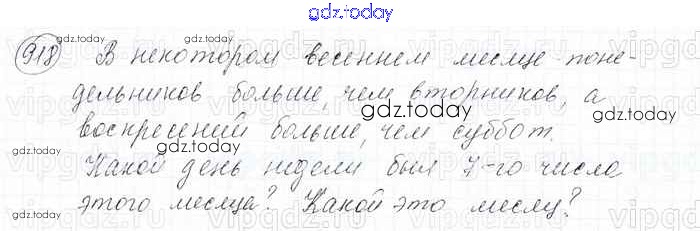 gdz.today
918 В некотором весеннем месяце поне-
gdz.today
дельников больше, чем вторников, а
gdz.today
gdz.today
воскресений больше, чем суббот.
Какой день недели был 7-го числа
gdz.today
этого месяца? Какой это месяц?